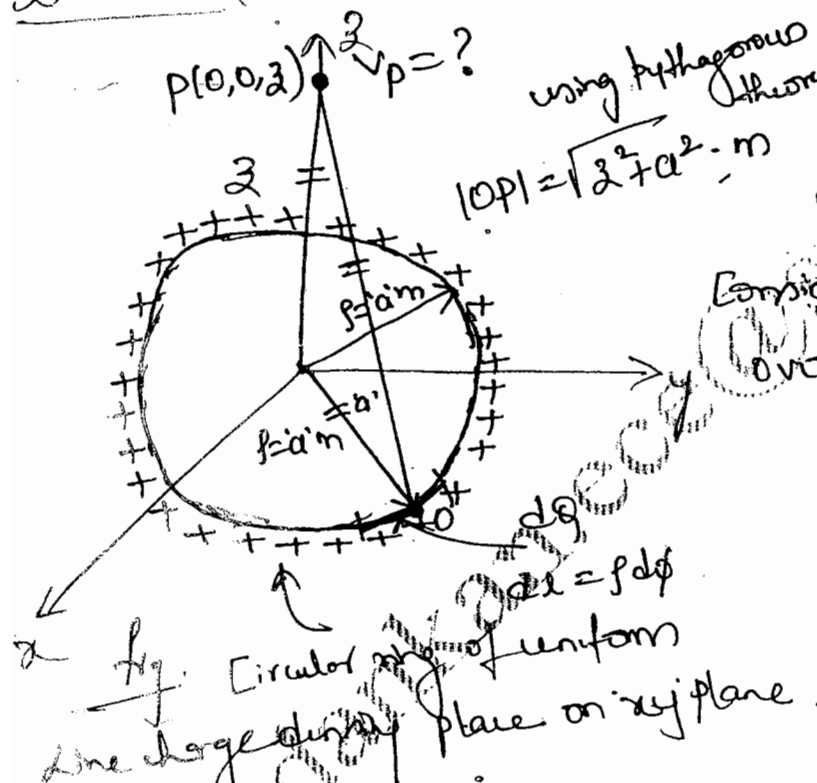 3
P(0,0,3) Vp = ?
using pythagorous
|OP| = √3²+a² . m
3
ρ='a'm
y
='a'
ρ='a'm
O
dQ
dl = ρdφ
x
fig Circular ring of uniform
Line charge density place on xy plane.